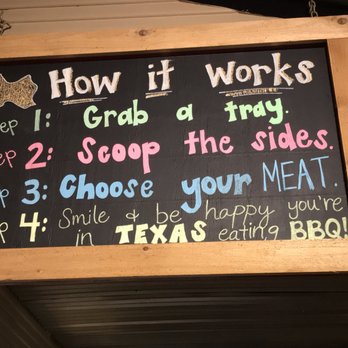 How it works
ep 1: Grab a tray.
ep 2: Scoop the sides.
ep 3: Choose your MEAT.
ep 4: Smile & be happy you're
in TEXAS eating BBQ!